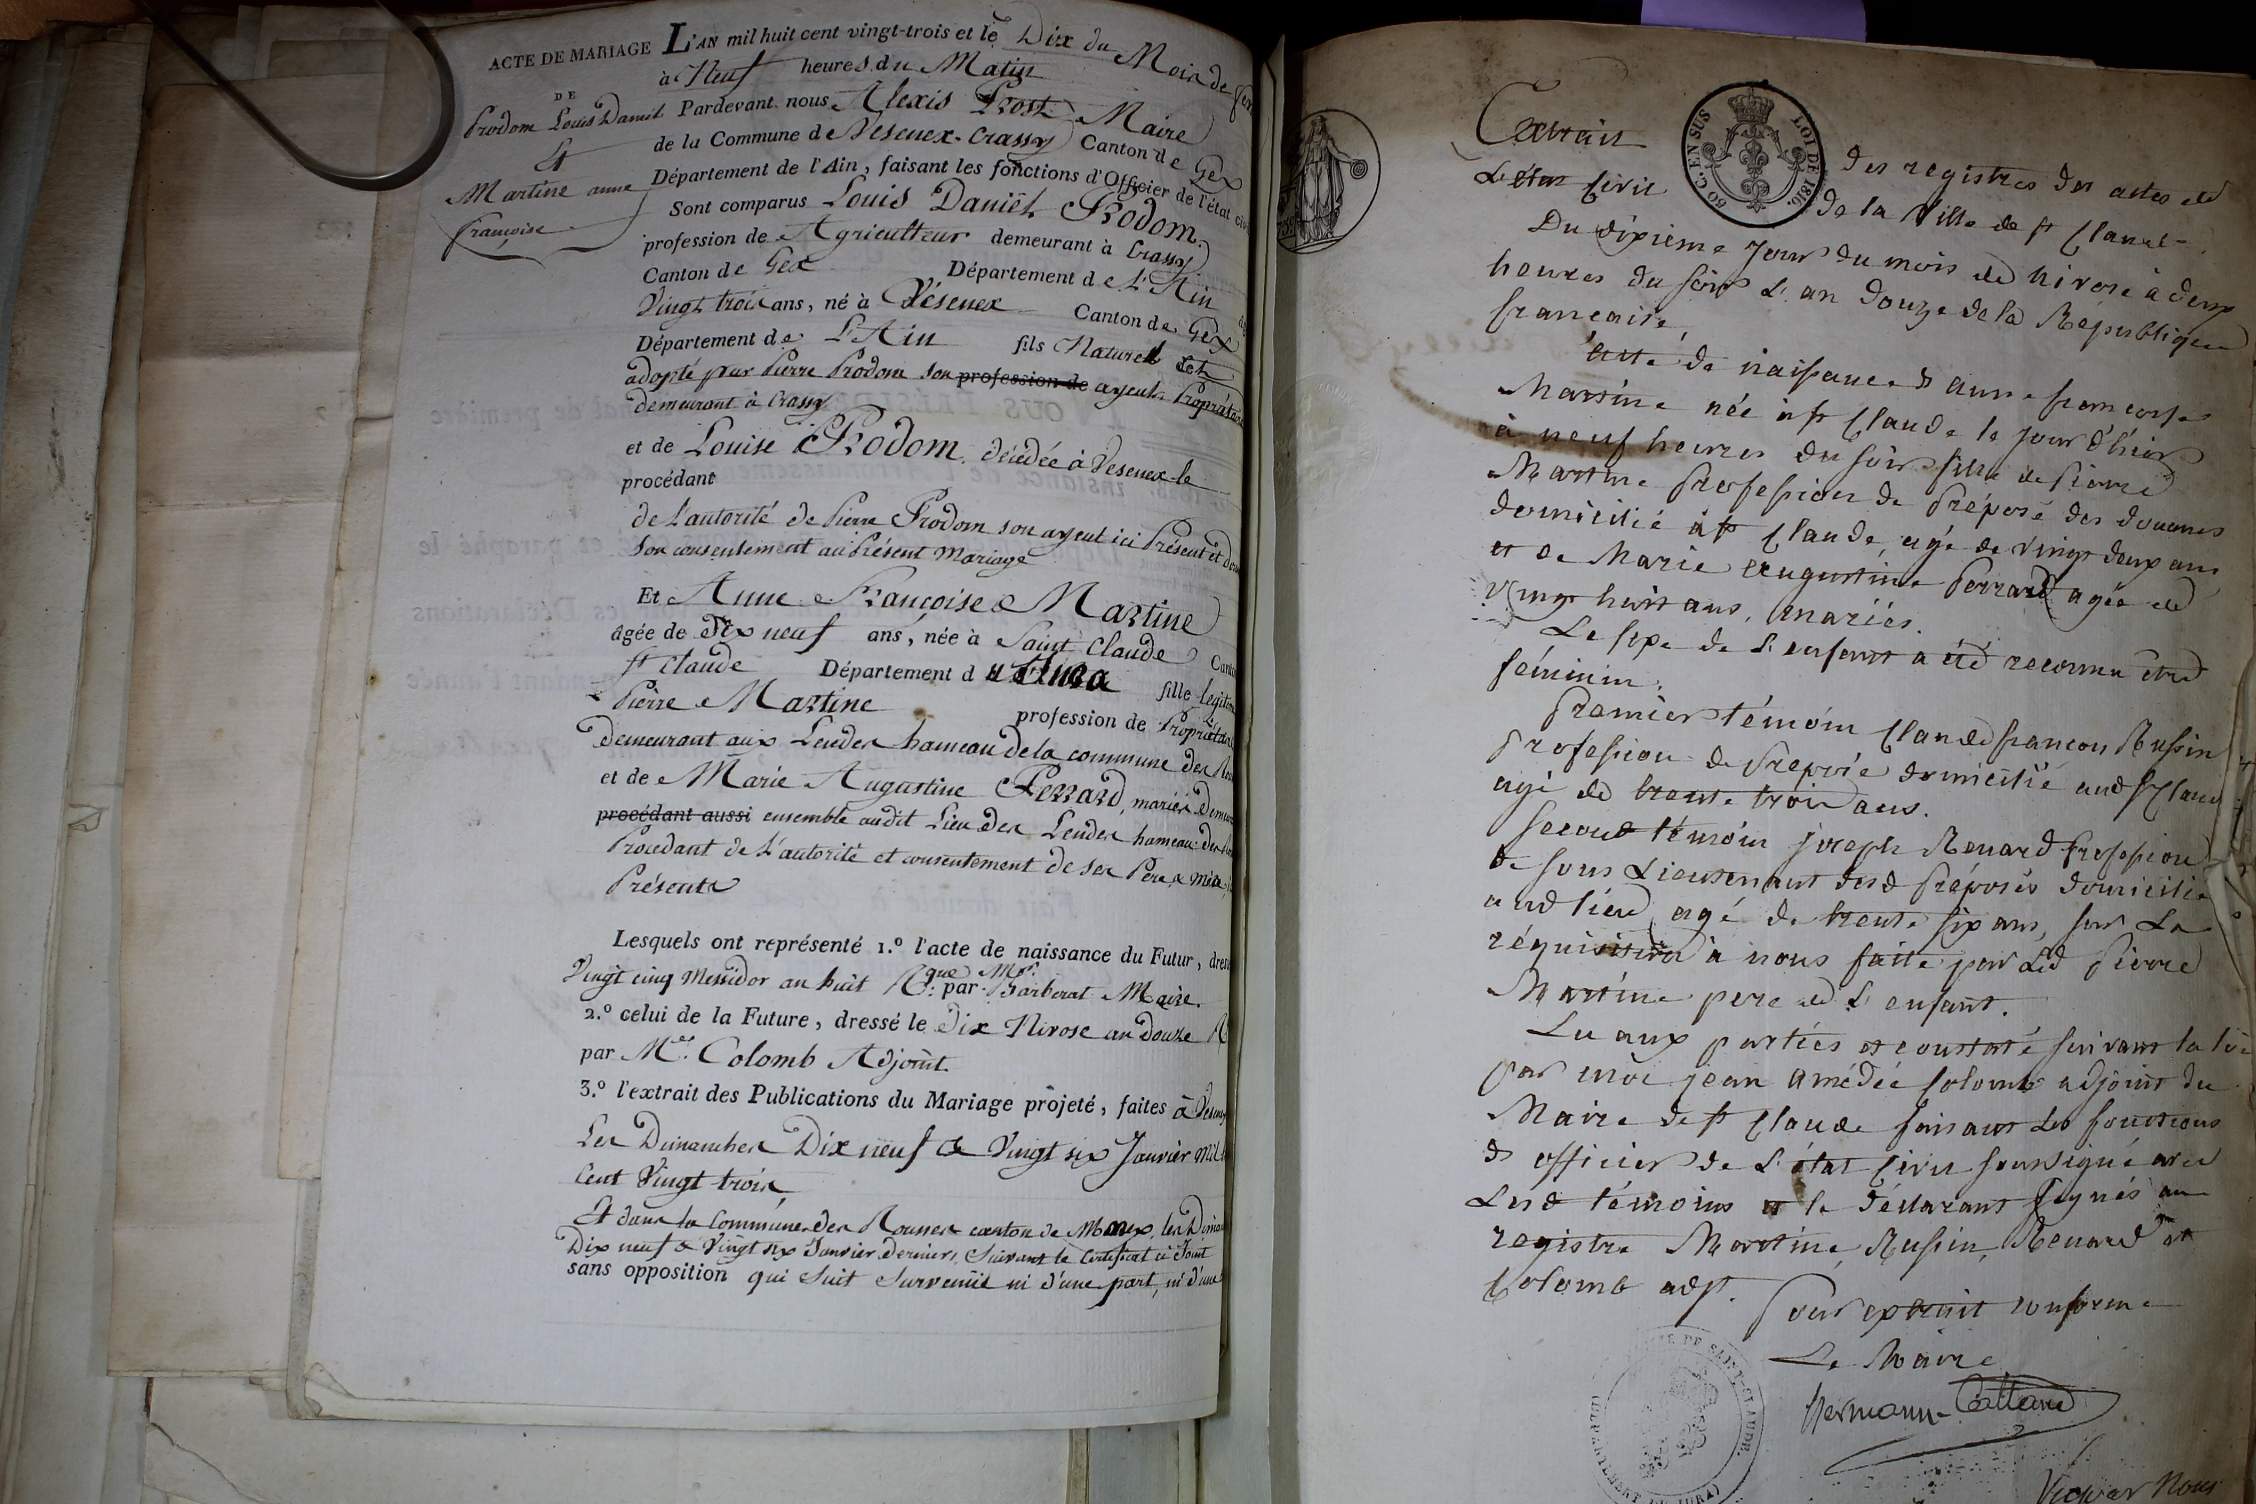 ACTE DE MARIAGE
DE
Prodom Louis Daniel
Et
Martine anne
françoise
L'AN mil huit cent vingt-trois et le Dix du Mois de
à Neuf heures du Matin
Pardevant nous Alexis Prost Maire
de la Commune de Vesenex-Crassy Canton de Gex
Département de l'Ain, faisant les fonctions d'Officier de l'état
Sont comparus Louis Daniel Prodom
profession de Agriculteur demeurant à Crassy
Canton de Gex Département de L'Ain
Vingt trois ans, né à Vésenex Canton de Gex
Département de L'Ain fils Naturel et
adopté par Pierre Prodom son profession de ayeul Propriétaire
demeurant à Crassy
et de Louise Prodom décédée à Vesenex le
procédant
de l'autorité de Pierre Prodom son ayeul ici Présent et
son consentement au Présent Mariage
Et Anne Françoise Martine
âgée de Dix neuf ans, née à Saint Claude
St Claude Département d u Jura fille
Pierre Martine profession de
demeurant aux Landes hameau de la commune des
et de Marie Augustine Perrard, mariés
procédant aussi ensemble audit Lieu des Landes hameau des
Procedant de L'autorité et consentement de ses Pere & mere
Présents
Lesquels ont représenté 1.º l'acte de naissance du Futur,
Vingt cinq Messidor an huit Rque: par Mr. Barberat Maire.
2.º celui de la Future, dressé le Dix Nivose an Douze
par Mr. Colomb Adjoint.
3.º l'extrait des Publications du Mariage projeté, faites à
Les Dimanches Dix neuf & Vingt six Janvier
Cent Vingt trois
Et dans la Commune des Rousses canton de Morez, les
Dix neuf & Vingt six Janvier Dernier, Suivant le Certificat ci Joint
sans opposition qui Soit Survenüe ni d'une part, ni d'une
50 C. EN SUS
LOI DE 1816.
Extrait des registres des actes de
L'état Civil de la Ville de St Claude
Du dixieme Jour du mois de nivose à deux
heures du soir L'an Douze de la Republique
francaise,
acte de naissance d'anne francoise
Martine née à St Claude le jour d'hier
à neuf heures du soir fille de Pierre
Martine profession de Préposé des douanes
domicilié à St Claude, agé de vingt deux ans
et de Marie augustine Perrard agée de
vingt huit ans, mariés.
Le sexe de L'enfant a été reconnu être
féminin.
Premier témoin Claude francois Russin
profession de Préposé domicilié aud St Claude
agé de trente trois ans.
Second témoin joseph Renard profession
de sous Lieutenant desd Préposés domicilié
aud lieu, agé de trente six ans, sur La
réquisition à nous faite par Led Pierre
Martine pere de L'enfant.
Lu aux parties et constaté suivant la loi
par moi jean amédée Colomb adjoint du
Maire de St Claude faisant Les fonctions
d'officier de L'état Civil soussigné avec
Lesd témoins et le déclarant signés au
registre Martine, Russin, Renard et
Colomb adjt.
Pour extrait conforme
Le Maire
DE SAINT-CLAUDE.
(DÉPARTEMENT DU JURA)